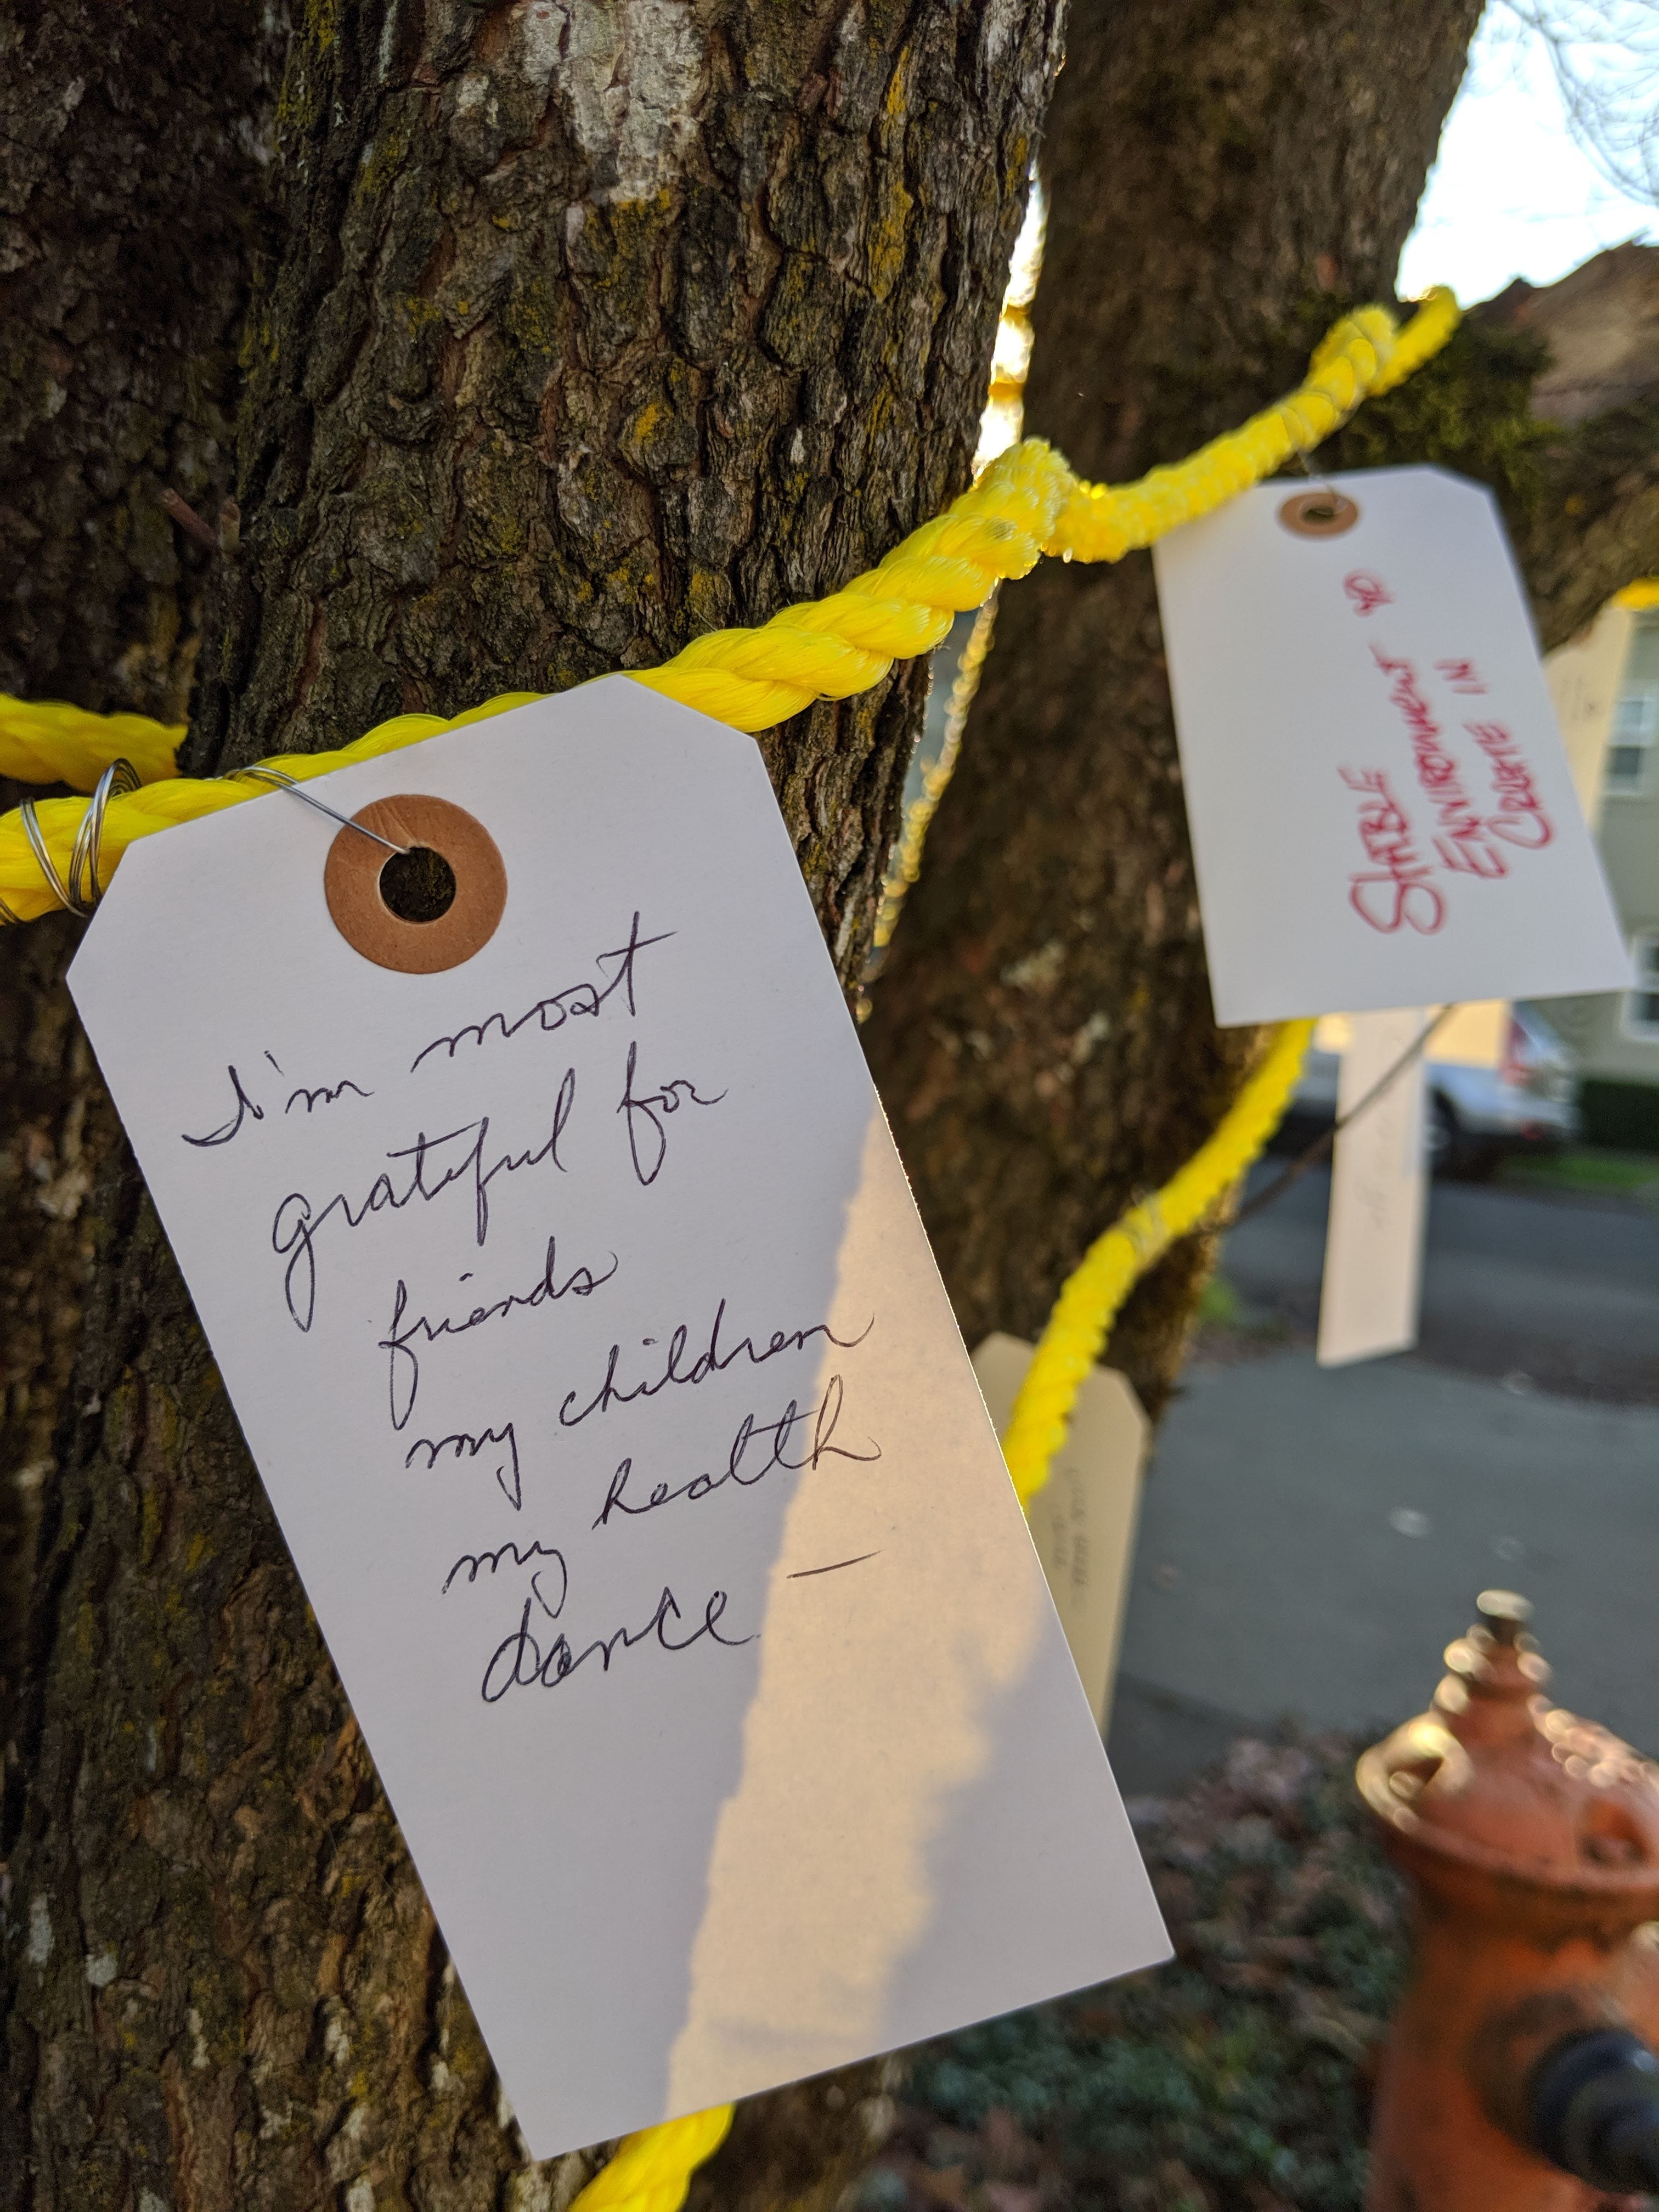 I'm most
grateful for
friends
my children
my health
dance —
STABLE
ENVIRONMENT TO
CREATE IN